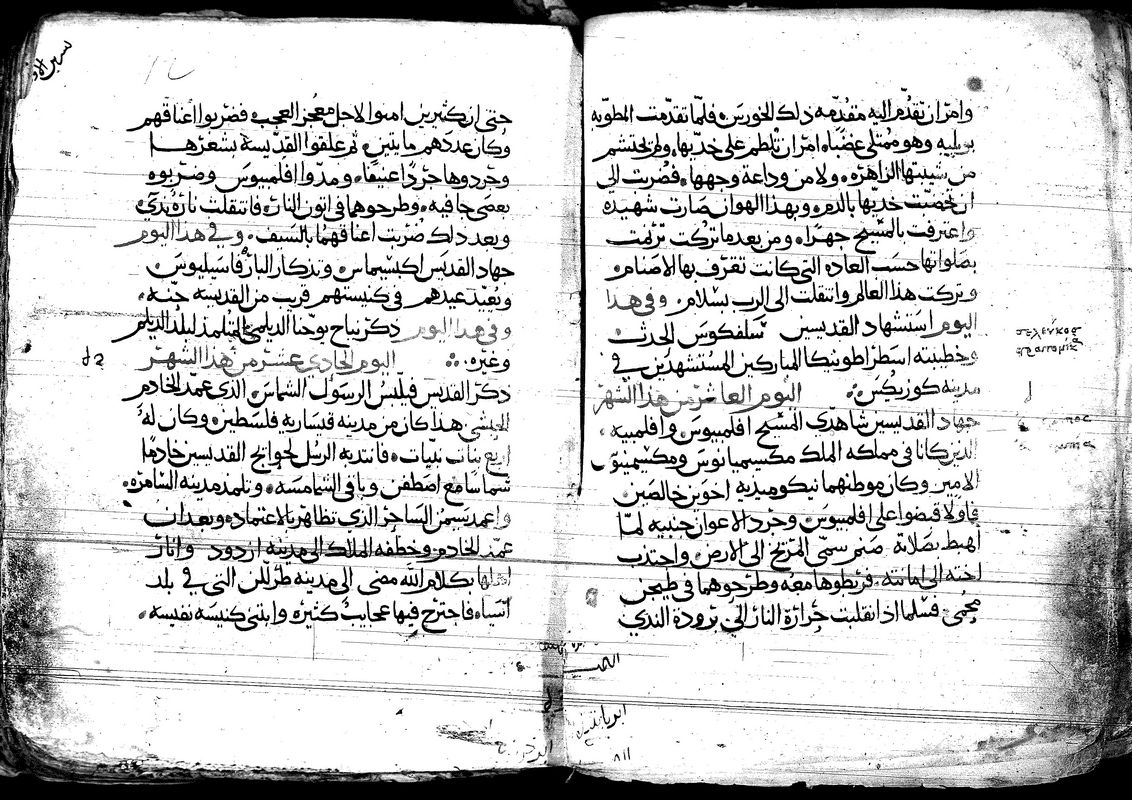 وامر ان تقدم اليه مقدمه ذلك الخورس، فلما تقدمت الطوبه
بوبليه وهو ممتلي غضبا، امر ان تلطم على خديها، ولم يحتشم
من شيبتها الزاهره، ولا من وداعة وجهها، فضربت الى
ان تخضبت خديها بالدم، وبهذا الهوان صارت شهيده
واعترفت بالمسيح جهرا، ومن بعد ما تركت ترنمت
بصلواتها حسب العاده التي كانت تقرف بها الاصنام،
وتركت هذا العالم وانتقلت الى الرب بسلام، وفي هذا
اليوم استشهاد القديسين سلفكوس الحدث
وخطيبته اسطراطونيكا المباركين المستشهدين في
مدينه كوزيكس، اليوم العاشر من هذا الشهر
جهاد القديسين شاهدي المسيح افلمبيوس وافلمبيه،
الذين كانا في مملكه الملك مكسيميانوس ومكسيمينوس
الامير وكان موطنهما نيكوميديه اخوين خالصين
فاولا قبضوا على افلمبيوس وجرد الاعوان جنبيه لما
اهبط بصلاته صنم سمي المريخ الى الارض واجتذب
اخته الى امانته، فربطوها معه وطرحوهما في طيجن
محمي، فسلما اذ انقلبت حرارة النار الى برودة الندي
حتى ان كثيرين امنوا لاجل معجز العجب، فضربوا اعناقهم
وكان عددهم مايتين، ثم علقوا القديسة بشعرها
وجردوها جردا عنيفا، ومدوا افلمبيوس وضربوه
بعصي جافيه، وطرحوهما في اتون النار، فانتقلت ناره ندي،
وبعد ذلك ضربت اعناقهما بالسيف، وفي هذا اليوم
جهاد القديس اكسيماس، وتذكار البار فاسيليوس،
ويعيد عيدهم في كنيستهم قريب من القديسه جنه،
وفي هذا اليوم ذكر نياح يوحنا الديلمي المتلمذ لبلد الديلم
وغيره، اليوم الحادي عشر من هذا الشهر
ذكر القديس فيلبس الرسول الشماس الذي عمد الخادم
الحبشي هذا كان من مدينه قساريه فلسطين وكان له
اربع بنات نبيات، فانتدبه الرسل لحوايج القديسين خادما
شماسا مع اصطفن وباقي الشمامسه، وتلمذ مدينه السامره،
واعمد سيمن الساحر الذي تظاهر بالاعتماد، وبعد ان
عمد الخادم وخطفه الملاك الى مدينه ازدود وانار
اهلها بكلام الله مضى الى مدينه طرللن التي في بلد
اسيا، فاجترح فيها عجايب كثيره وابتنى كنيسه نفيسه،